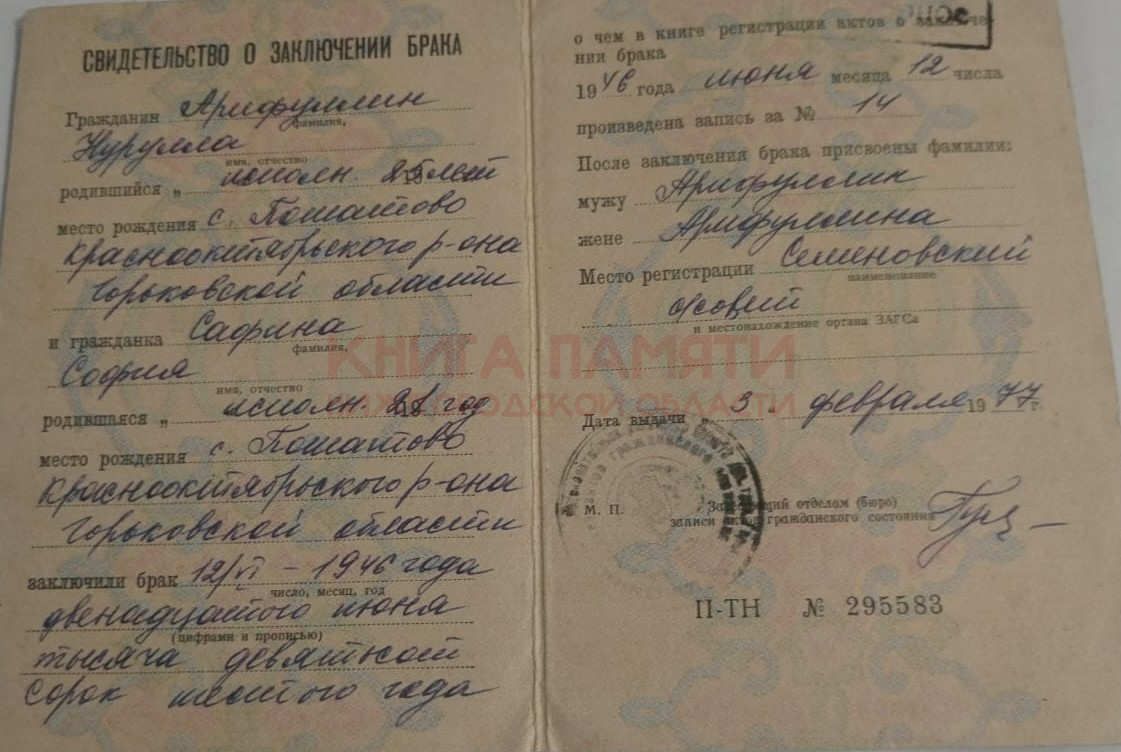 СВИДЕТЕЛЬСТВО О ЗАКЛЮЧЕНИИ БРАКА
Гражданин Арифуллин
фамилия,
Нурулла
имя, отчество
родившийся „ исполн. 25 лет
место рождения с. Пошатово
Краснооктябрьского р-она
Горьковской области
и гражданка Сафина
фамилия,
София
имя, отчество
родившаяся „ исполн. 21 год
место рождения с. Пошатово
Краснооктябрьского р-она
Горьковской области
заключили брак 12/VI – 1946 года
число, месяц, год
двенадцатого июня
(цифрами и прописью)
тысяча девятьсот
сорок шестого года
о чем в книге регистрации актов о заключе-
нии брака
1946 года июня месяца 12 числа
произведена запись за № 14
После заключения брака присвоены фамилии:
мужу Арифуллин
жене Арифуллина
Место регистрации Семеновский
наименование
и местонахождение органа ЗАГСа
Дата выдачи „ 3 „ февраля 1977 г.
М. П. Заведующий отделом (бюро)
записи актов гражданского состояния
П-ТН № 295583
КНИГА ПАМЯТИ
НИЖЕГОРОДСКОЙ ОБЛАСТИ